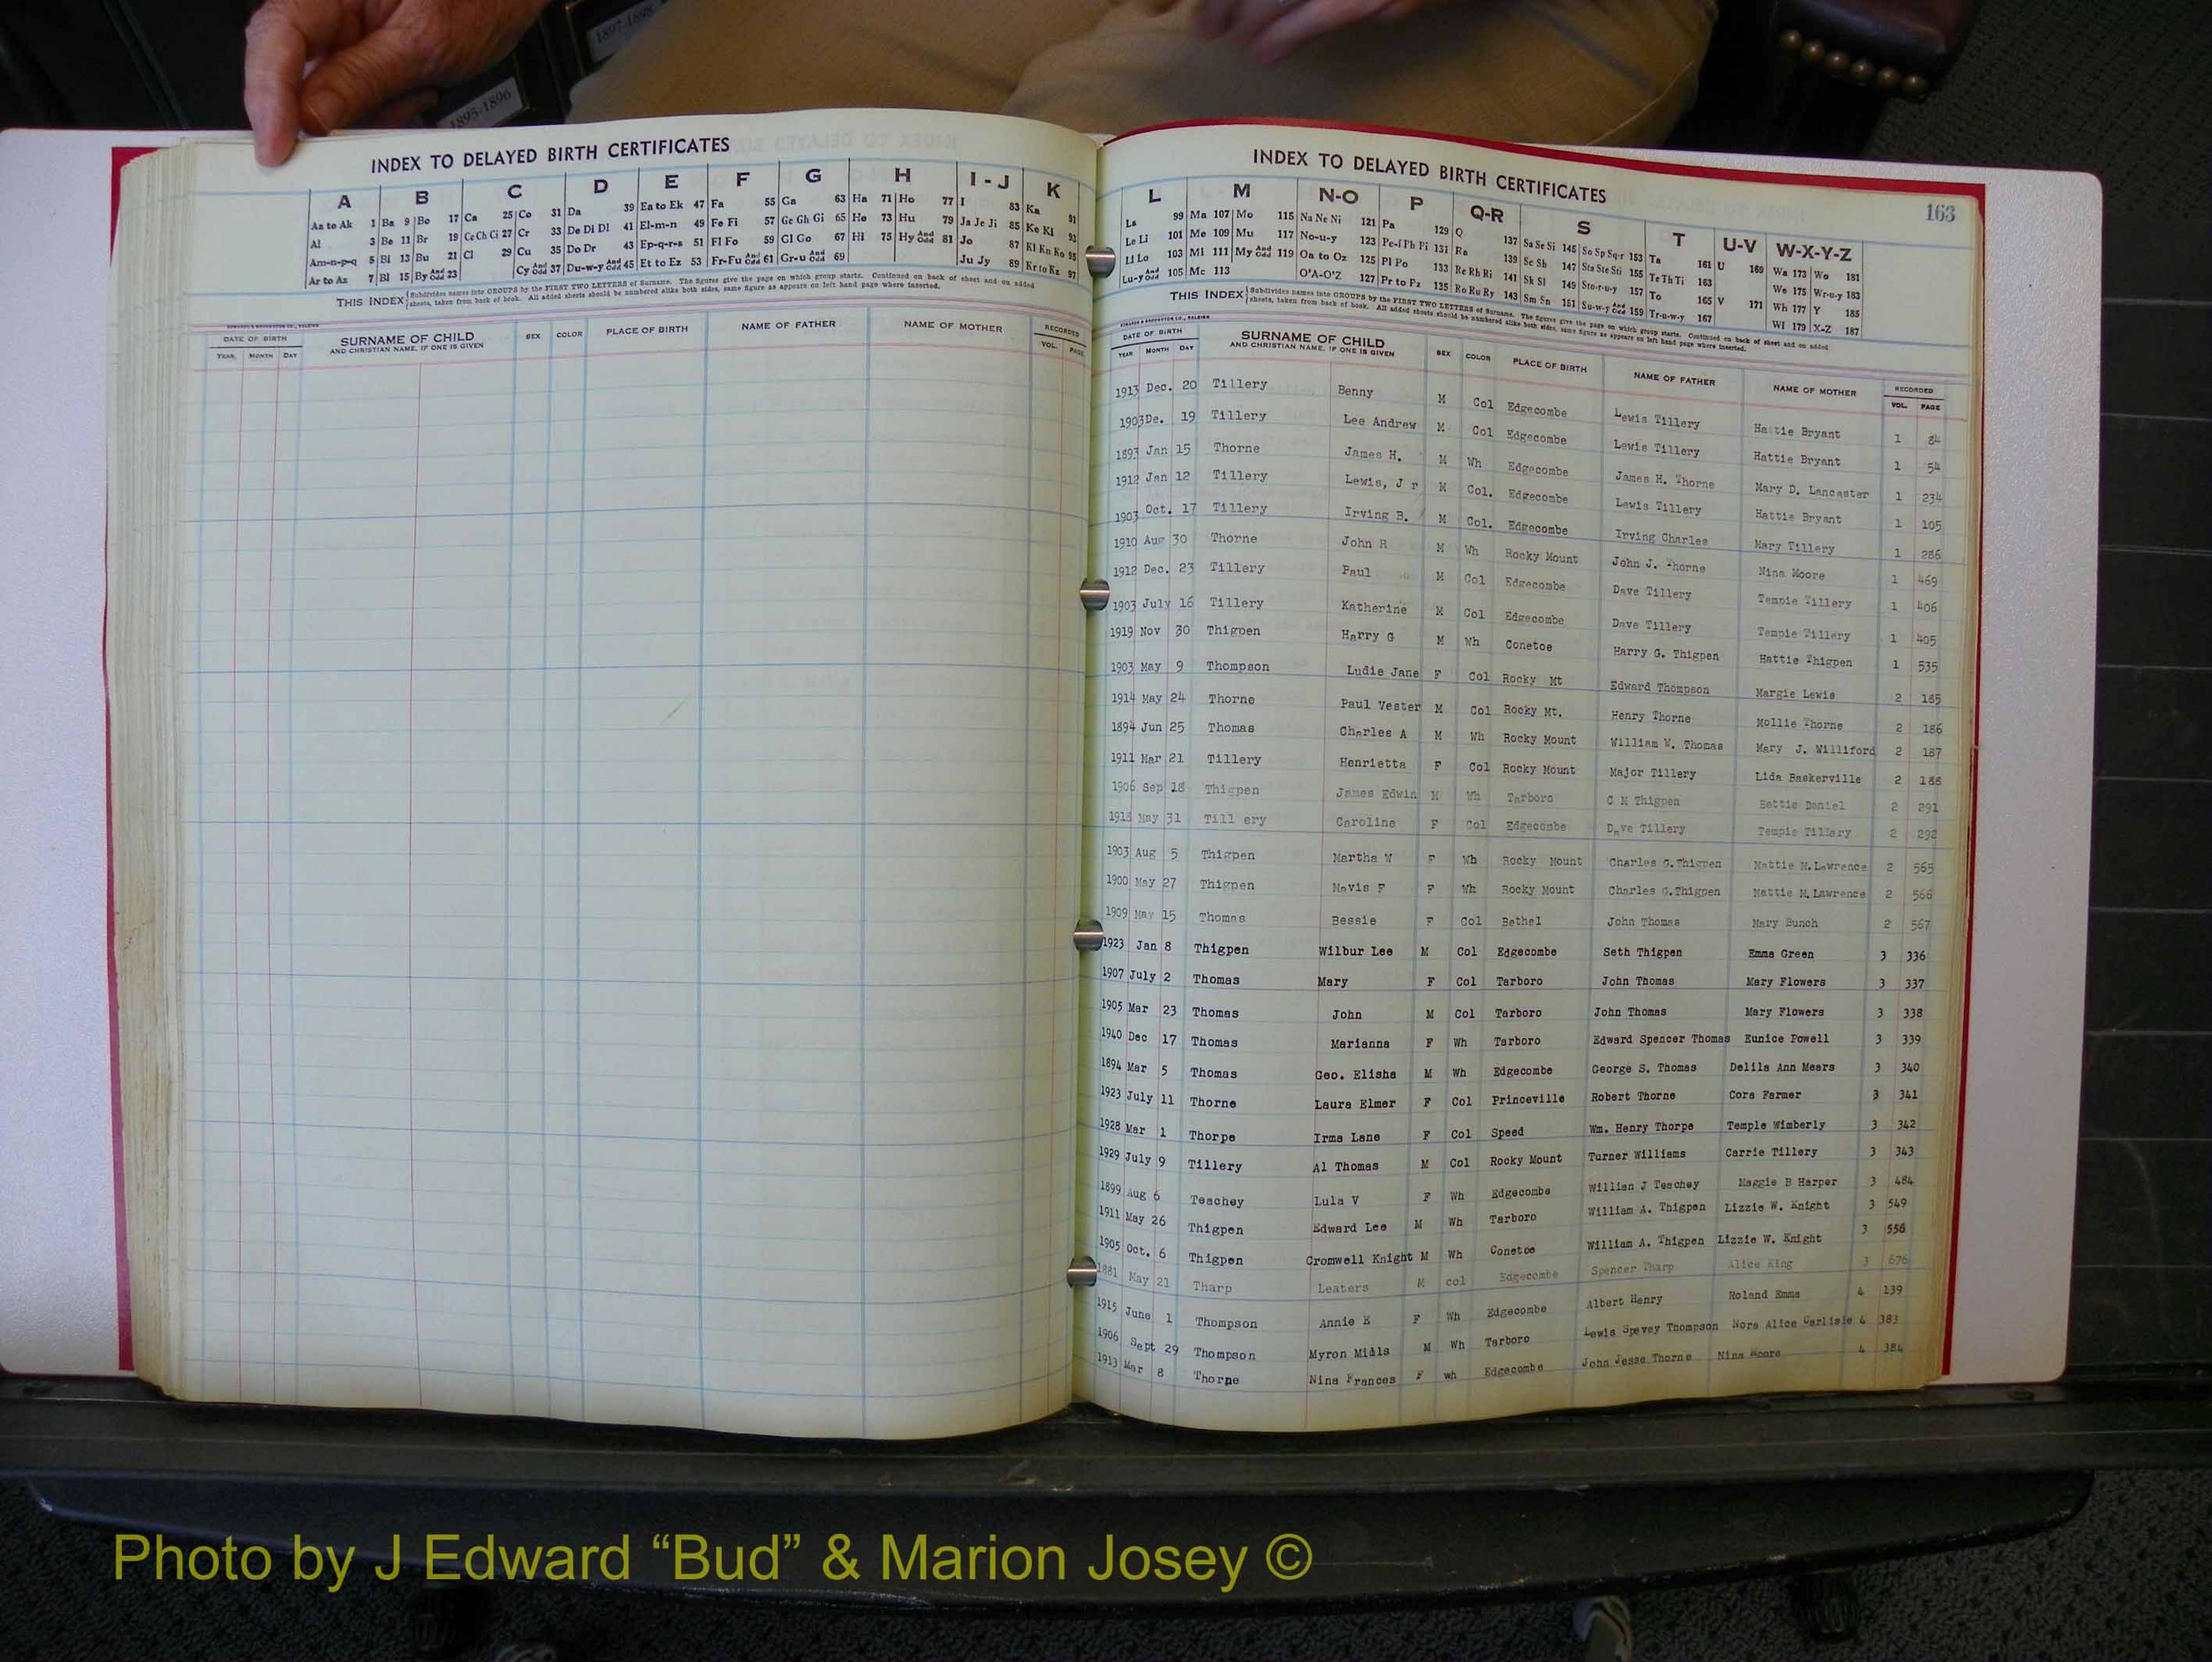 1897-1898
1895-1896
INDEX TO DELAYED BIRTH CERTIFICATES
A B C D E F G H I - J K
Aa to Ak 1 Ba 9 Bo 17 Ca 25 Co 31 Da 39 Ea to Ek 47 Fa 55 Ga 63 Ha 71 Ho 77 I 83 Ka 91
Al 3 Be 11 Br 19 Ce Ch Ci 27 Cr 33 De Di Dl 41 El-m-n 49 Fe Fi 57 Ge Gh Gi 65 He 73 Hu 79 Ja Je Ji 85 Ke Ki 93
Am-n-p-q 5 Bi 13 Bu 21 Cl 29 Cu 35 Do Dr 43 Ep-q-r-s 51 Fl Fo 59 Gl Go 67 Hi 75 Hy And Odd 81 Jo 87 Kl Kn Ko 95
Ar to Az 7 Bl 15 By And Odd 23 Cy And Odd 37 Du-w-y And Odd 45 Et to Ez 53 Fr-Fu And Odd 61 Gr-u And Odd 69 Ju Jy 89 Kr to Kz 97
THIS INDEX Subdivides names into GROUPS by the FIRST TWO LETTERS of Surname. The figures give the page on which group starts. Continued on back of sheet and on added
sheets, taken from back of book. All added sheets should be numbered alike both sides, same figure as appears on left hand page where inserted.
EDWARDS & BROUGHTON CO., RALEIGH
DATE OF BIRTH SURNAME OF CHILD SEX COLOR PLACE OF BIRTH NAME OF FATHER NAME OF MOTHER RECORDED
YEAR MONTH DAY AND CHRISTIAN NAME, IF ONE IS GIVEN VOL. PAGE
INDEX TO DELAYED BIRTH CERTIFICATES
163
L M N-O P Q-R S T U-V W-X-Y-Z
La 99 Ma 107 Mo 115 Na Ne Ni 121 Pa 129 Q 137 Sa Se Si 145 So Sp Sq-r 153 Ta 161 U 169 Wa 173 Wo 181
Le Li 101 Me 109 Mu 117 No-u-y 123 Pe-f Ph Pi 131 Ra 139 Sc Sh 147 Sta Ste Sti 155 Te Th Ti 163 We 175 Wr-u-y 183
Ll Lo 103 Mi 111 My And Odd 119 Oa to Oz 125 Pl Po 133 Re Rh Ri 141 Sk Sl 149 Sto-r-u-y 157 To 165 V 171 Wh 177 Y 185
Lu-y And Odd 105 Mc 113 O'A-O'Z 127 Pr to Pz 135 Ro Ru Ry 143 Sm Sn 151 Su-w-y And Odd 159 Tr-u-w-y 167 Wi 179 X-Z 187
THIS INDEX Subdivides names into GROUPS by the FIRST TWO LETTERS of Surname. The figures give the page on which group starts. Continued on back of sheet and on added
sheets, taken from back of book. All added sheets should be numbered alike both sides, same figure as appears on left hand page where inserted.
EDWARDS & BROUGHTON CO., RALEIGH
DATE OF BIRTH SURNAME OF CHILD SEX COLOR PLACE OF BIRTH NAME OF FATHER NAME OF MOTHER RECORDED
YEAR MONTH DAY AND CHRISTIAN NAME, IF ONE IS GIVEN VOL. PAGE
1913 Dec. 20 Tillery Benny M Col Edgecombe Lewis Tillery Hattie Bryant 1 84
1903 De. 19 Tillery Lee Andrew M Col Edgecombe Lewis Tillery Hattie Bryant 1 54
1893 Jan 15 Thorne James H. M Wh Edgecombe James H. Thorne Mary D. Lancaster 1 234
1912 Jan 12 Tillery Lewis, J r M Col. Edgecombe Lewis Tillery Hattie Bryant 1 105
1903 Oct. 17 Tillery Irving B. M Col. Edgecombe Irving Charles Mary Tillery 1 286
1910 Aug 30 Thorne John R M Wh Rocky Mount John J. Thorne Nina Moore 1 469
1912 Dec. 23 Tillery Paul M Col Edgecombe Dave Tillery Tempie Tillery 1 406
1903 July 16 Tillery Katherine M Col Edgecombe Dave Tillery Tempie Tillery 1 405
1919 Nov 30 Thigpen Harry G M Wh Conetoe Harry G. Thigpen Hattie Thigpen 1 535
1903 May 9 Thompson Ludie Jane F Col Rocky Mt Edward Thompson Margie Lewis 2 185
1914 May 24 Thorne Paul Vester M Col Rocky Mt. Henry Thorne Mollie Thorne 2 186
1894 Jun 25 Thomas Charles A M Wh Rocky Mount William W. Thomas Mary J. Williford 2 187
1911 Mar 21 Tillery Henrietta F Col Rocky Mount Major Tillery Lida Baskerville 2 188
1906 Sep 18 Thigpen James Edwin M Wh Tarboro C M Thigpen Bettie Daniel 2 291
1918 May 31 Till ery Caroline F Col Edgecombe Dave Tillery Tempie Tillery 2 292
1903 Aug 5 Thigpen Martha W F Wh Rocky Mount Charles G.Thigpen Mattie M.Lawrence 2 565
1900 May 27 Thigpen Mavis F F Wh Rocky Mount Charles G.Thigpen Mattie M.Lawrence 2 566
1909 May 15 Thomas Bessie F Col Bethel John Thomas Mary Bunch 2 567
1923 Jan 8 Thigpen Wilbur Lee M Col Edgecombe Seth Thigpen Emma Green 3 336
1907 July 2 Thomas Mary F Col Tarboro John Thomas Mary Flowers 3 337
1905 Mar 23 Thomas John M Col Tarboro John Thomas Mary Flowers 3 338
1940 Dec 17 Thomas Marianna F Wh Tarboro Edward Spencer Thomas Eunice Powell 3 339
1894 Mar 5 Thomas Geo. Elisha M Wh Edgecombe George S. Thomas Delila Ann Mears 3 340
1923 July 11 Thorne Laura Elmer F Col Princeville Robert Thorne Cora Farmer 3 341
1928 Mar 1 Thorpe Irma Lane F Col Speed Wm. Henry Thorpe Temple Wimberly 3 342
1929 July 9 Tillery Al Thomas M Col Rocky Mount Turner Williams Carrie Tillery 3 343
1899 Aug 6 Teachey Lula V F Wh Edgecombe Willian J Teachey Maggie B Harper 3 484
1911 May 26 Thigpen Edward Lee M Wh Tarboro William A. Thigpen Lizzie W. Knight 3 549
1905 Oct. 6 Thigpen Cromwell Knight M Wh Conetoe William A. Thigpen Lizzie W. Knight 3 556
1881 May 21 Tharp Leaters M col Edgecombe Spencer Tharp Alice King 3 676
1915 June 1 Thompson Annie E F Wh Edgecombe Albert Henry Roland Emma 4 139
1906 Sept 29 Thompson Myron Mills M Wh Tarboro Lewis Spevey Thompson Nora Alice Carlisle 4 383
1913 Mar 8 Thorne Nina Frances F wh Edgecombe John Jesse Thorne Nina Moore 4 384
Photo by J Edward “Bud” & Marion Josey ©